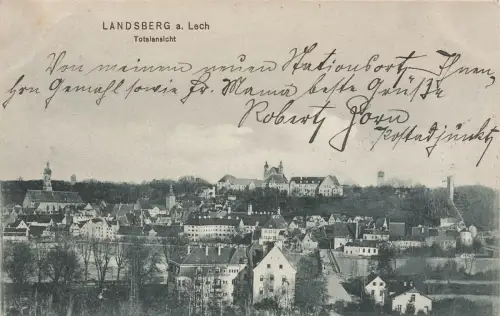 LANDSBERG a. Lech
Totalansicht
Von meinem neuen Stationsort Ihnen,
hrn Gemahl sowie Fr. Mama beste Grüße
Robert Horn
Postadjunkt